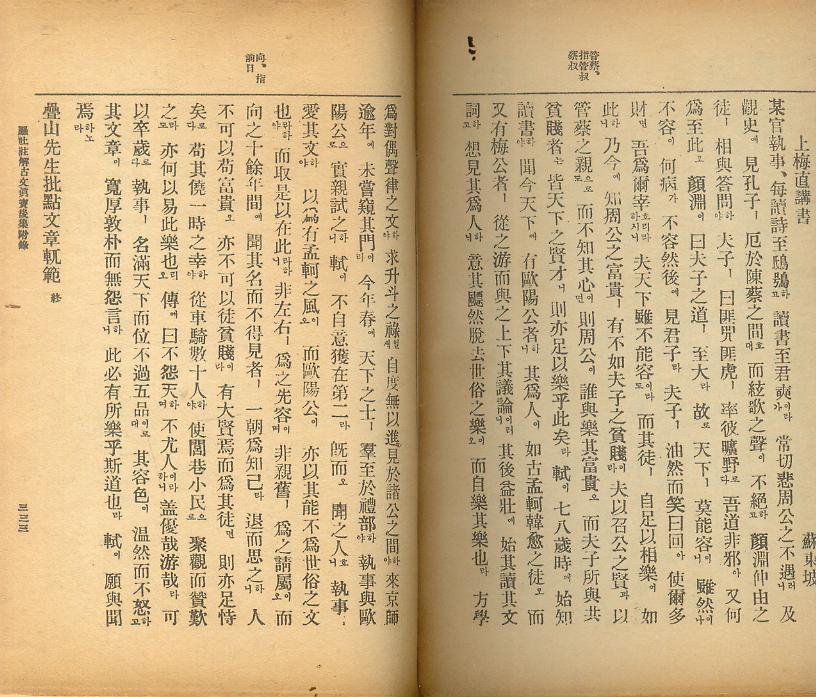 上梅直講書
蘇東坡
某官執事、每讀詩至鴟鴞하고 讀書至君奭이라가 常切悲周公之不遇러니 及
觀史에 見孔子ㅣ 厄於陳蔡之間호대 而絃歌之聲이 不絕고하 顏淵仲由之
徒ㅣ 相與答問하야 夫子ㅣ 曰匪兕匪虎ㅣ 率彼曠野로다 吾道非邪아 又何
爲至此고 顏淵이 曰夫子之道ㅣ 至大라 故로 天下ㅣ 莫能容이니 雖然이나
不容이 何病가 不容然後에 見君子라 夫子ㅣ 油然而笑曰回아 使爾多
財면 吾爲爾宰호리라하시니 夫天下雖不能容이라도 而其徒ㅣ 自足以相樂이 如
此하니 乃今에 知周公之富貴ㅣ 有不如夫子之貧賤이라 夫以召公之賢과 以
管蔡之親으로 而不知其心이면 則周公이 誰與樂其富貴오 而夫子所與共
貧賤者는 皆天下之賢才니 則亦足以樂乎此矣라 軾이 七八歲時에 始知
讀書하야 聞今天下에 有歐陽公者하니 其爲人이 如古孟軻韓愈之徒오 而
又有梅公者ㅣ 從之游而與之上下其議論이러니 其後益壯에 始其讀其文
詞고 想見其爲人하니 意其飄然脫去世俗之樂이오 而自樂其樂也라 方學
管蔡、
指管叔
蔡叔
爲對偶聲律之文하야 求升斗之祿새 自度無以進見於諸公之間하야 來京師
逾年에 未嘗窺其門이러니 今年春에 天下之士ㅣ 羣至於禮部하야 執事與歐
陽公으로 實親試之하니 軾이 不自意獲在第二라 旣而오 聞之人호니 執事ㅣ
愛其文하야 以爲有孟軻之風이오 而歐陽公이 亦以其能不爲世俗之文
也라하야 而取是以在此니라 非左右ㅣ 爲之先容며이 非親舊ㅣ 爲之請屬이오 而
向之十餘年間에 聞其名而不得見者ㅣ 一朝爲知己라 退而思之하니 人
不可以苟富貴오 亦不可以徒貧賤이라 有大賢焉而爲其徒면 則亦足恃
矣로다 苟其僥一時之幸하야 從車騎數十人하야 使閭巷小民으로 聚觀而贊歎
之라도 亦何以易此樂也리오 傳에 曰不怨天며하 不尤人이라하니 盖優哉游哉라 可
以卒歲로다 執事ㅣ 名滿天下而位不過五品이로대 其容色이 温然而不怒하고
其文章이 寬厚敦朴而無怨言하니 此必有所樂乎斯道也라 軾이 願與聞
焉하노라
向、指
前日
疊山先生批點文章軌範 終
懸吐註解古文眞寶後集附錄
三二三